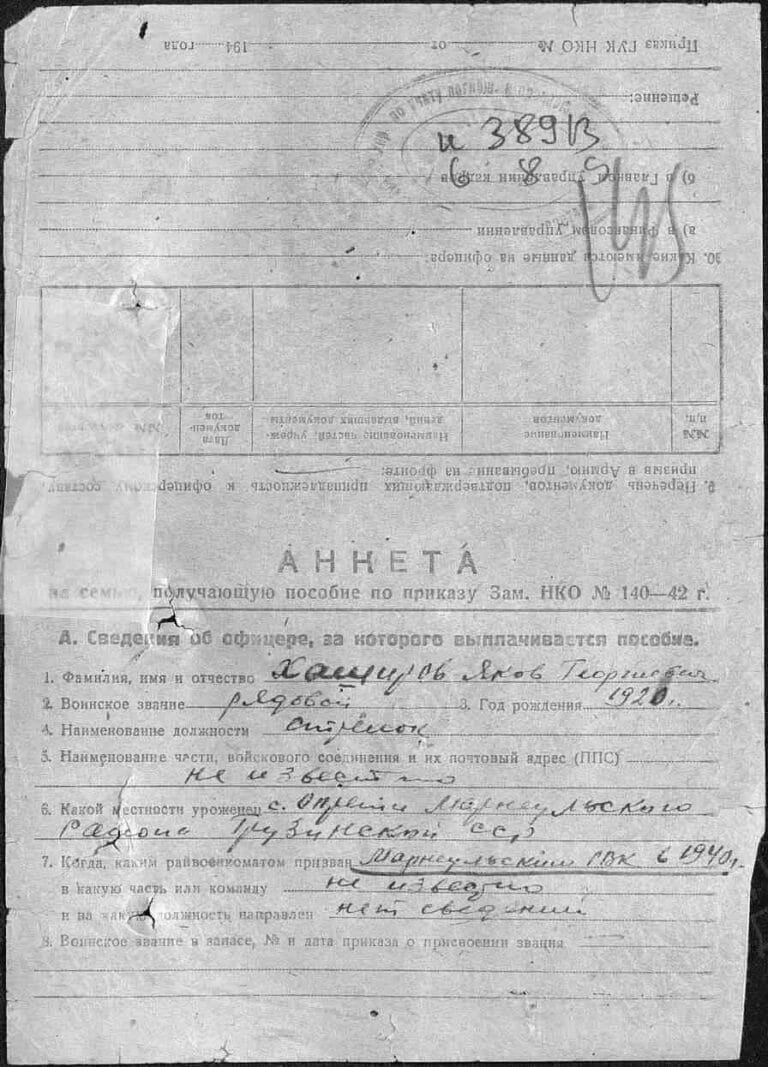 Приказ ГУК НКО № от 194 года
Решение:
и 389 13
6 8 9
б) в Главном управлении кадров
а) в Финансовом управлении
10. Какие имеются данные на офицера:
№№ п/п. Наименование документов Наименование частей, учреждений, выдавших документы Дата документов
9. Перечень документов, подтверждающих принадлежность к офицерскому составу,
призыв в Армию, пребывание на фронте:
АНКЕТА
на семью, получающую пособие по приказу Зам. НКО № 140—42 г.
А. Сведения об офицере, за которого выплачивается пособие.
1. Фамилия, имя и отчество Хаширов Яков Георгиевич
2. Воинское звание рядовой 3. Год рождения 1920 г.
4. Наименование должности стрелок
5. Наименование части, войскового соединения и их почтовый адрес (ППС)
не известно
6. Какой местности уроженец с. Опрети Марнеульского
района Грузинской ССР
7. Когда, каким райвоенкоматом призван Марнеульским РВК в 1940 г.
в какую часть или команду не известно
и на какую должность направлен нет сведений
8. Воинское звание в запасе, № и дата приказа о присвоении звания